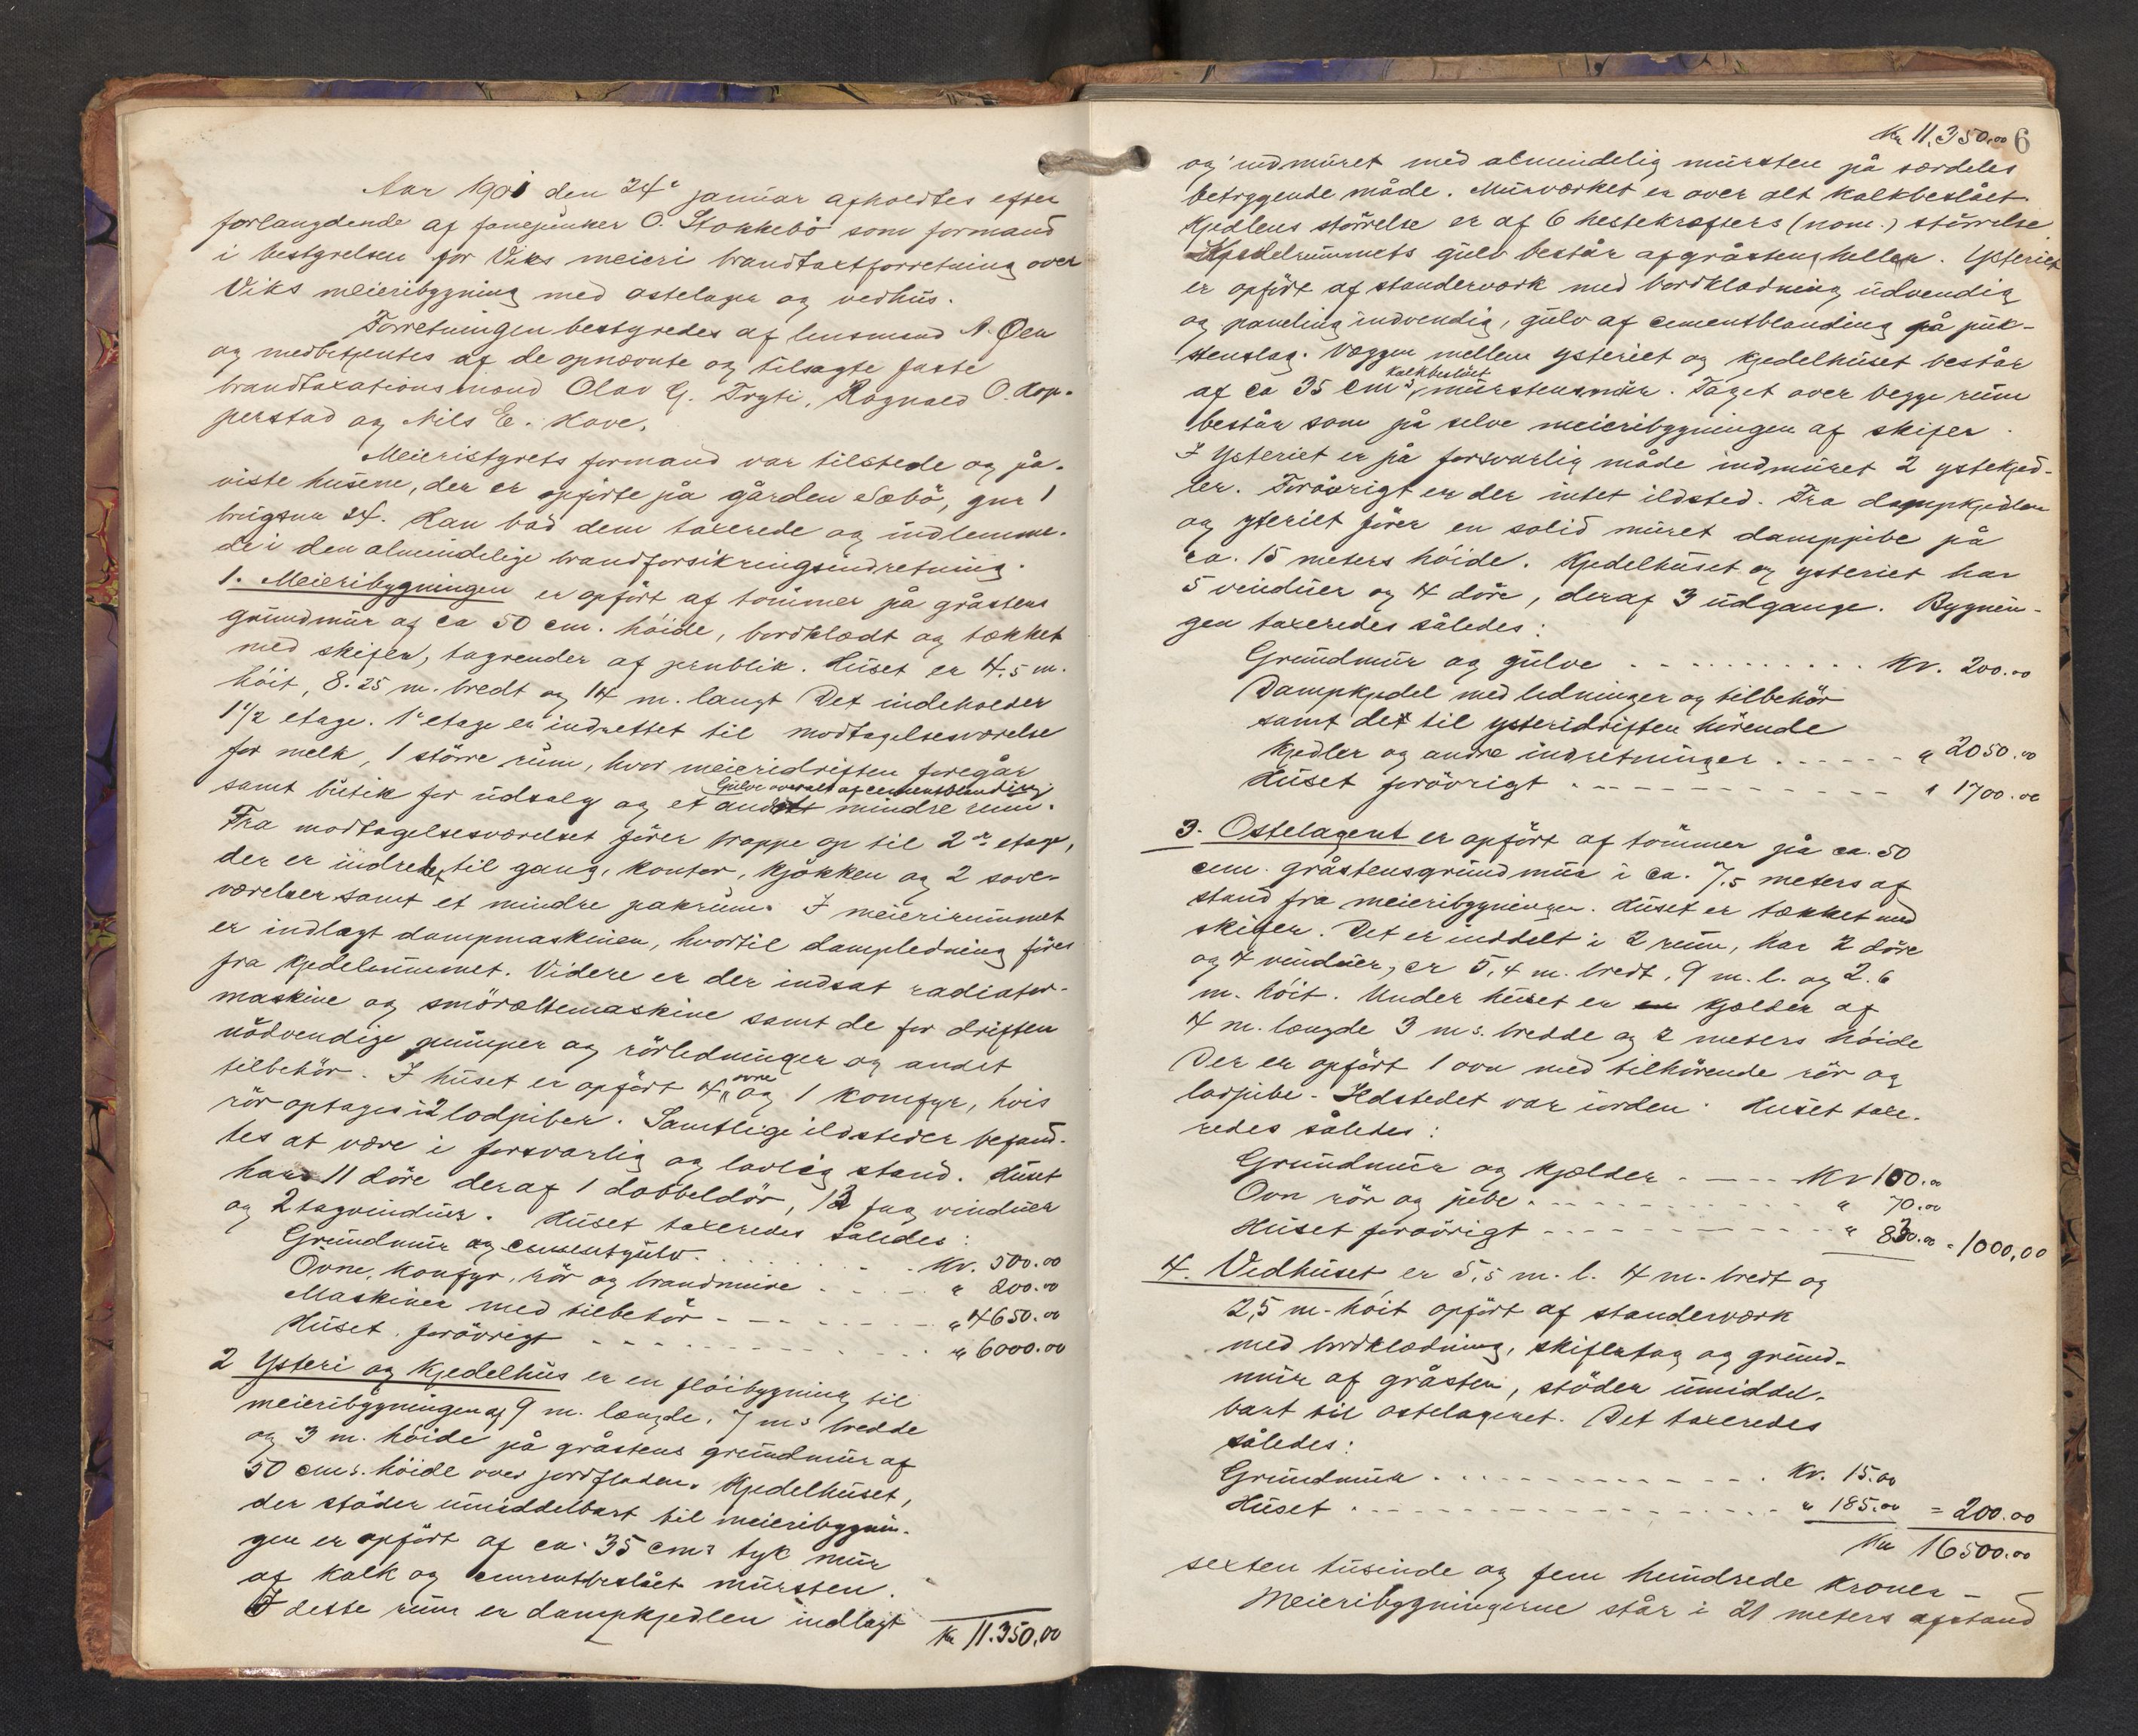 Aar 1901 den 24de januar afholdtes efter
forlangdende af fanejunker O. Stokkebö som formand
i bestyrelsen for Viks meieri brandtaxtforretning over
Viks meieribygning med ostelager og vedhus.
Forretningen bestyredes af lensmand A. Øen
og medbetjentes af de opnævnte og tilsagte faste
brandtaxationsmænd Olav G. Tryti, Ragnald O. Hop-
perstad og Nils E. Hove.
Meieristyrets formand var tilstede og på-
viste husene, der er opförte på gården Sæbö, gnr 1
brugsnr 24. Han bad dem taxerede og indlemme-
de i den almindelige brandforsikringsindretning.
1. Meieribygningen er opfört af tømmer på gråstens
grundmur af ca 50 cm. höide, bordklædt og tækket
med skifer, tagrender af jernblik. Huset er 4.5 m.
höit, 8.25 m. bredt og 14 m. langt. Det indeholder
1 1/2 etage. 1ste etage er indrettet til modtagelsesværelse
for melk, 1 större rum, hvor meieridriften foregår
samt butik for udsalg og et andet mindre rum. Gulve overalt af cementblanding
Fra modtagelsesværelset förer trappe op til 2den etage,
der er indredet til gang, kontor, kjökken og 2 sove-
værelser samt et mindre pakrum. I meierirummet
er indlagt dampmaskinen, hvortil dampledning förer
fra kjedelrummet. Videre er der indsat radiator-
maskine og smöræltemaskine samt de for driften
nödvendige pumper og rörledninger og andet
tilbehör. I huset er opfört 4 ovne og 1 komfyr, hvis
rör optages i 2 lodpiber. Samtlige ildsteder befand-
tes at være i forsvarlig og lovlig stand. Huset
har 11 döre deraf 1 dobbeldör, 13 fag vinduer
og 2 tagvinduer. Huset taxeredes således:
Grundmur og cementgulv . . . . . . kr. 500.00
Ovne, konfyr, rör og brandmure . . . . " 200.00
Maskiner med tilbehör - - - - - - " 4650.00
Huset forövrigt - - - - - - - " 6000.00
2 Ysteri og kjedelhus er en flöibygning til
meieribygningen af 9 m. længde, 7 m.s bredde
og 3 m. höide på gråstens grundmur af
50 cm.s höide over jordfladen. Kjedelhuset,
der stöder umiddelbart til meieribygnin-
gen er opfört af ca. 35 cm.s tyk mur
af kalk og cementbeslået mursten.
I dette rum er dampkjedlen indlagt
Kr 11.350,00
Kr 11,350.00 6
og indmuret med almindelig mursten på særdeles
betryggende måde. Murværket er over alt kalkbeslået.
Kjedlens störrelse er af 6 hestekræfters (nom.) störrelse.
Kjedelrummets gulv består af gråstensheller. Ysteriet
er opfört af standerværk med bordklædning udvendig
og paneling indvendig, gulv af cementblanding på puk-
stenslag. Væggen mellem ysteriet og kjedelhuset består
af ca 35 cm.s kalkbeslået murstensmur. Taget over begge rum
består som på selve meieribygningen af skifer.
I Ysteriet er på forsvarlig måde indmuret 2 ystekjed-
ler. Forövrigt er der intet ildsted. Fra dampkjedlen
og ysteriet förer en solid muret damppibe på
ca. 15 meters höide. Kjedelhuset og ysteriet har
5 vinduer og 4 döre, deraf 3 udgange. Bygnin-
gen taxeredes således:
Grundmur og gulve . . . . . . . . . . Kr. 200.00
Dampkjedel med ledninger og tilbehör
samt det til ysteridriften hörende
kjedler og andre indretninger . . . . . - " 2050.00
Huset forövrigt . - - - - - - - - - " 1700.00
3. Ostelageret er opfört af tömmer på ca. 50
cm. gråstensgrundmur i ca. 7.5 meters af
stand fra meieribygningen. Huset er tækket med
skifer. Det er inddelt i 2 rum, har 2 döre
og 4 vinduer, er 5,4 m. bredt, 9 m. l. og 2.6
m. höit. Under huset er en kjelder af
4 m. længde 3 m.s. bredde og 2 meters höide
Der er opfört 1 ovn med tilhörende rör og
lodpibe. Ildstedet var iorden. Huset taxe-
redes således:
Grundmur og kjelder - - - - - Kr 100.00
Ovn rör og pibe . - - - - - - - - " 70.00
Huset forövrigt - - - - - - - - " 830.00 = 1000,00
4. Vedhuset er 5,5 m. l. 4 m. bredt og
2,5 m. höit opfört af standerværk
med bordklædning, skifertag og grund-
mur af gråsten, stöder umiddel-
bart til ostelageret. Det taxeredes
således:
Grundmur . . . . . . . . . . . Kr. 15.00
Huset . - - - - - - - - - - - " 185.00 = 200.00
Kr 16500.00
sexten tusinde og fem hundrede kroner -
Meieribygningerne står i 21 meters afstand